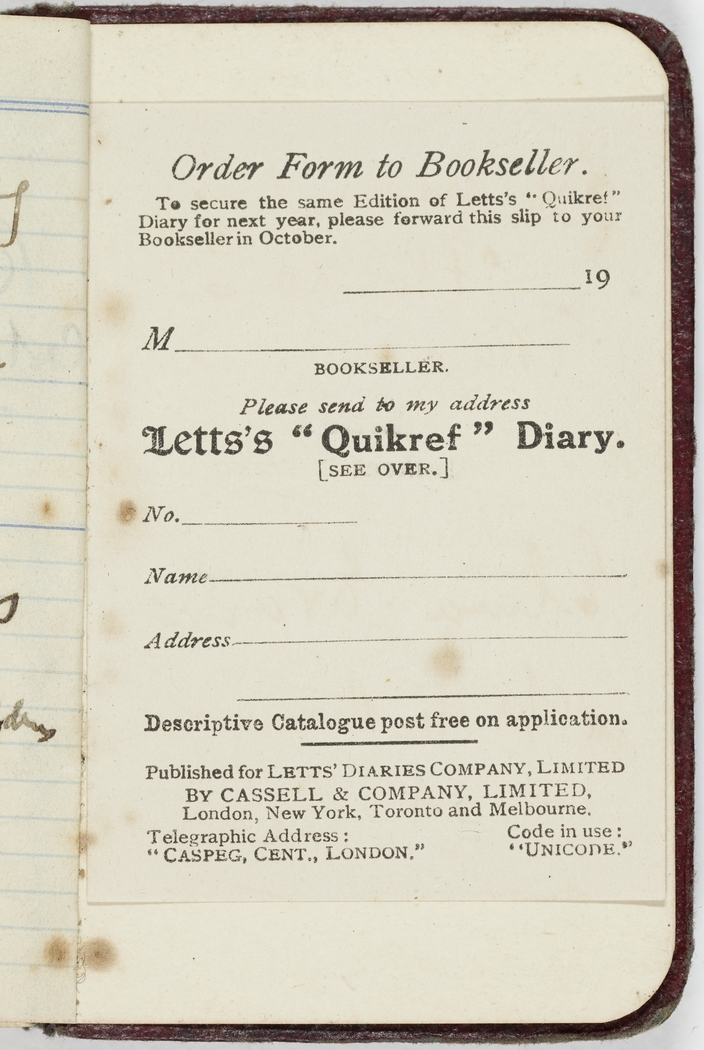 Order Form to Bookseller.
To secure the same Edition of Letts's "Quikref"
Diary for next year, please forward this slip to your
Bookseller in October.
19
M
BOOKSELLER.
Please send to my address
Letts's "Quikref" Diary.
[SEE OVER.]
No.
Name
Address
Descriptive Catalogue post free on application.
Published for LETTS' DIARIES COMPANY, LIMITED
BY CASSELL & COMPANY, LIMITED,
London, New York, Toronto and Melbourne.
Telegraphic Address:
"CASPEG, CENT., LONDON."
Code in use:
"UNICODE."